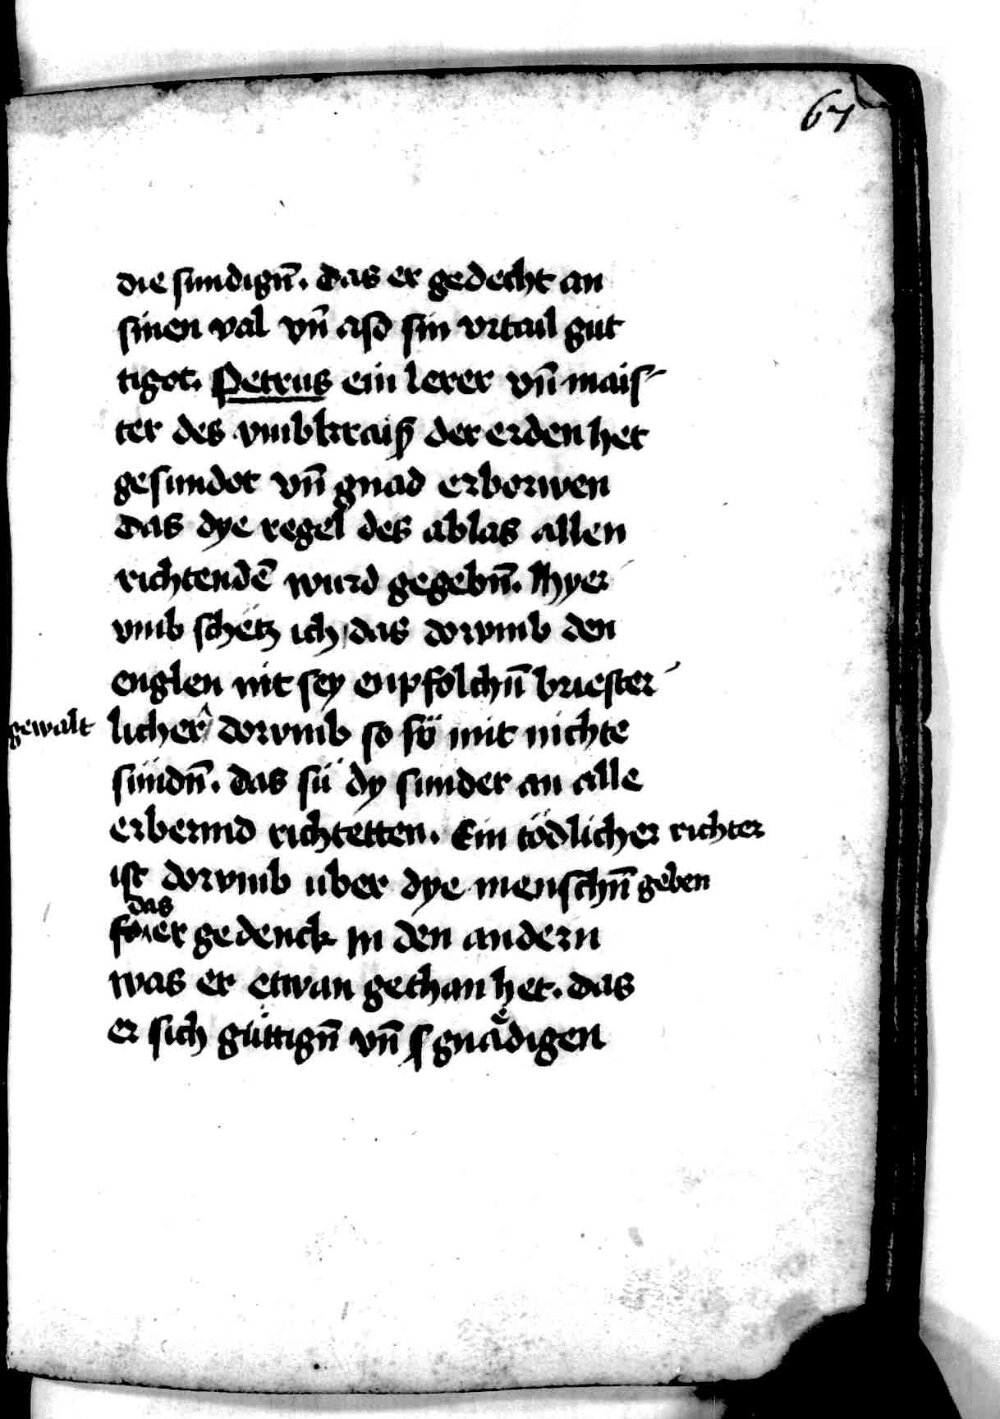 67
die sundigñ. das er gedecht an
sinen val vñ also sin vrtail güt
tigot. Petrus ein lerer vñ mais
ter des vmbkraiß der erden het
gesundot vñ gnad erworwen
das dye regel des ablas allen
richtendē wurd gegebñ. Hyer
vmb schetz ich das dorvmb den
englen nit sey enpfolchñ briester
gewalt licher dorvmb so sÿ mit nichte
sündñ. das sü dy sunder an alle
erbermd richtetten. Ein tödlicher richter
ist dorvmb uber dye menschñ geben
das
er gedenck in den andern
was er etwan gethan het. das
er sich güttigñ vñ gnädigen